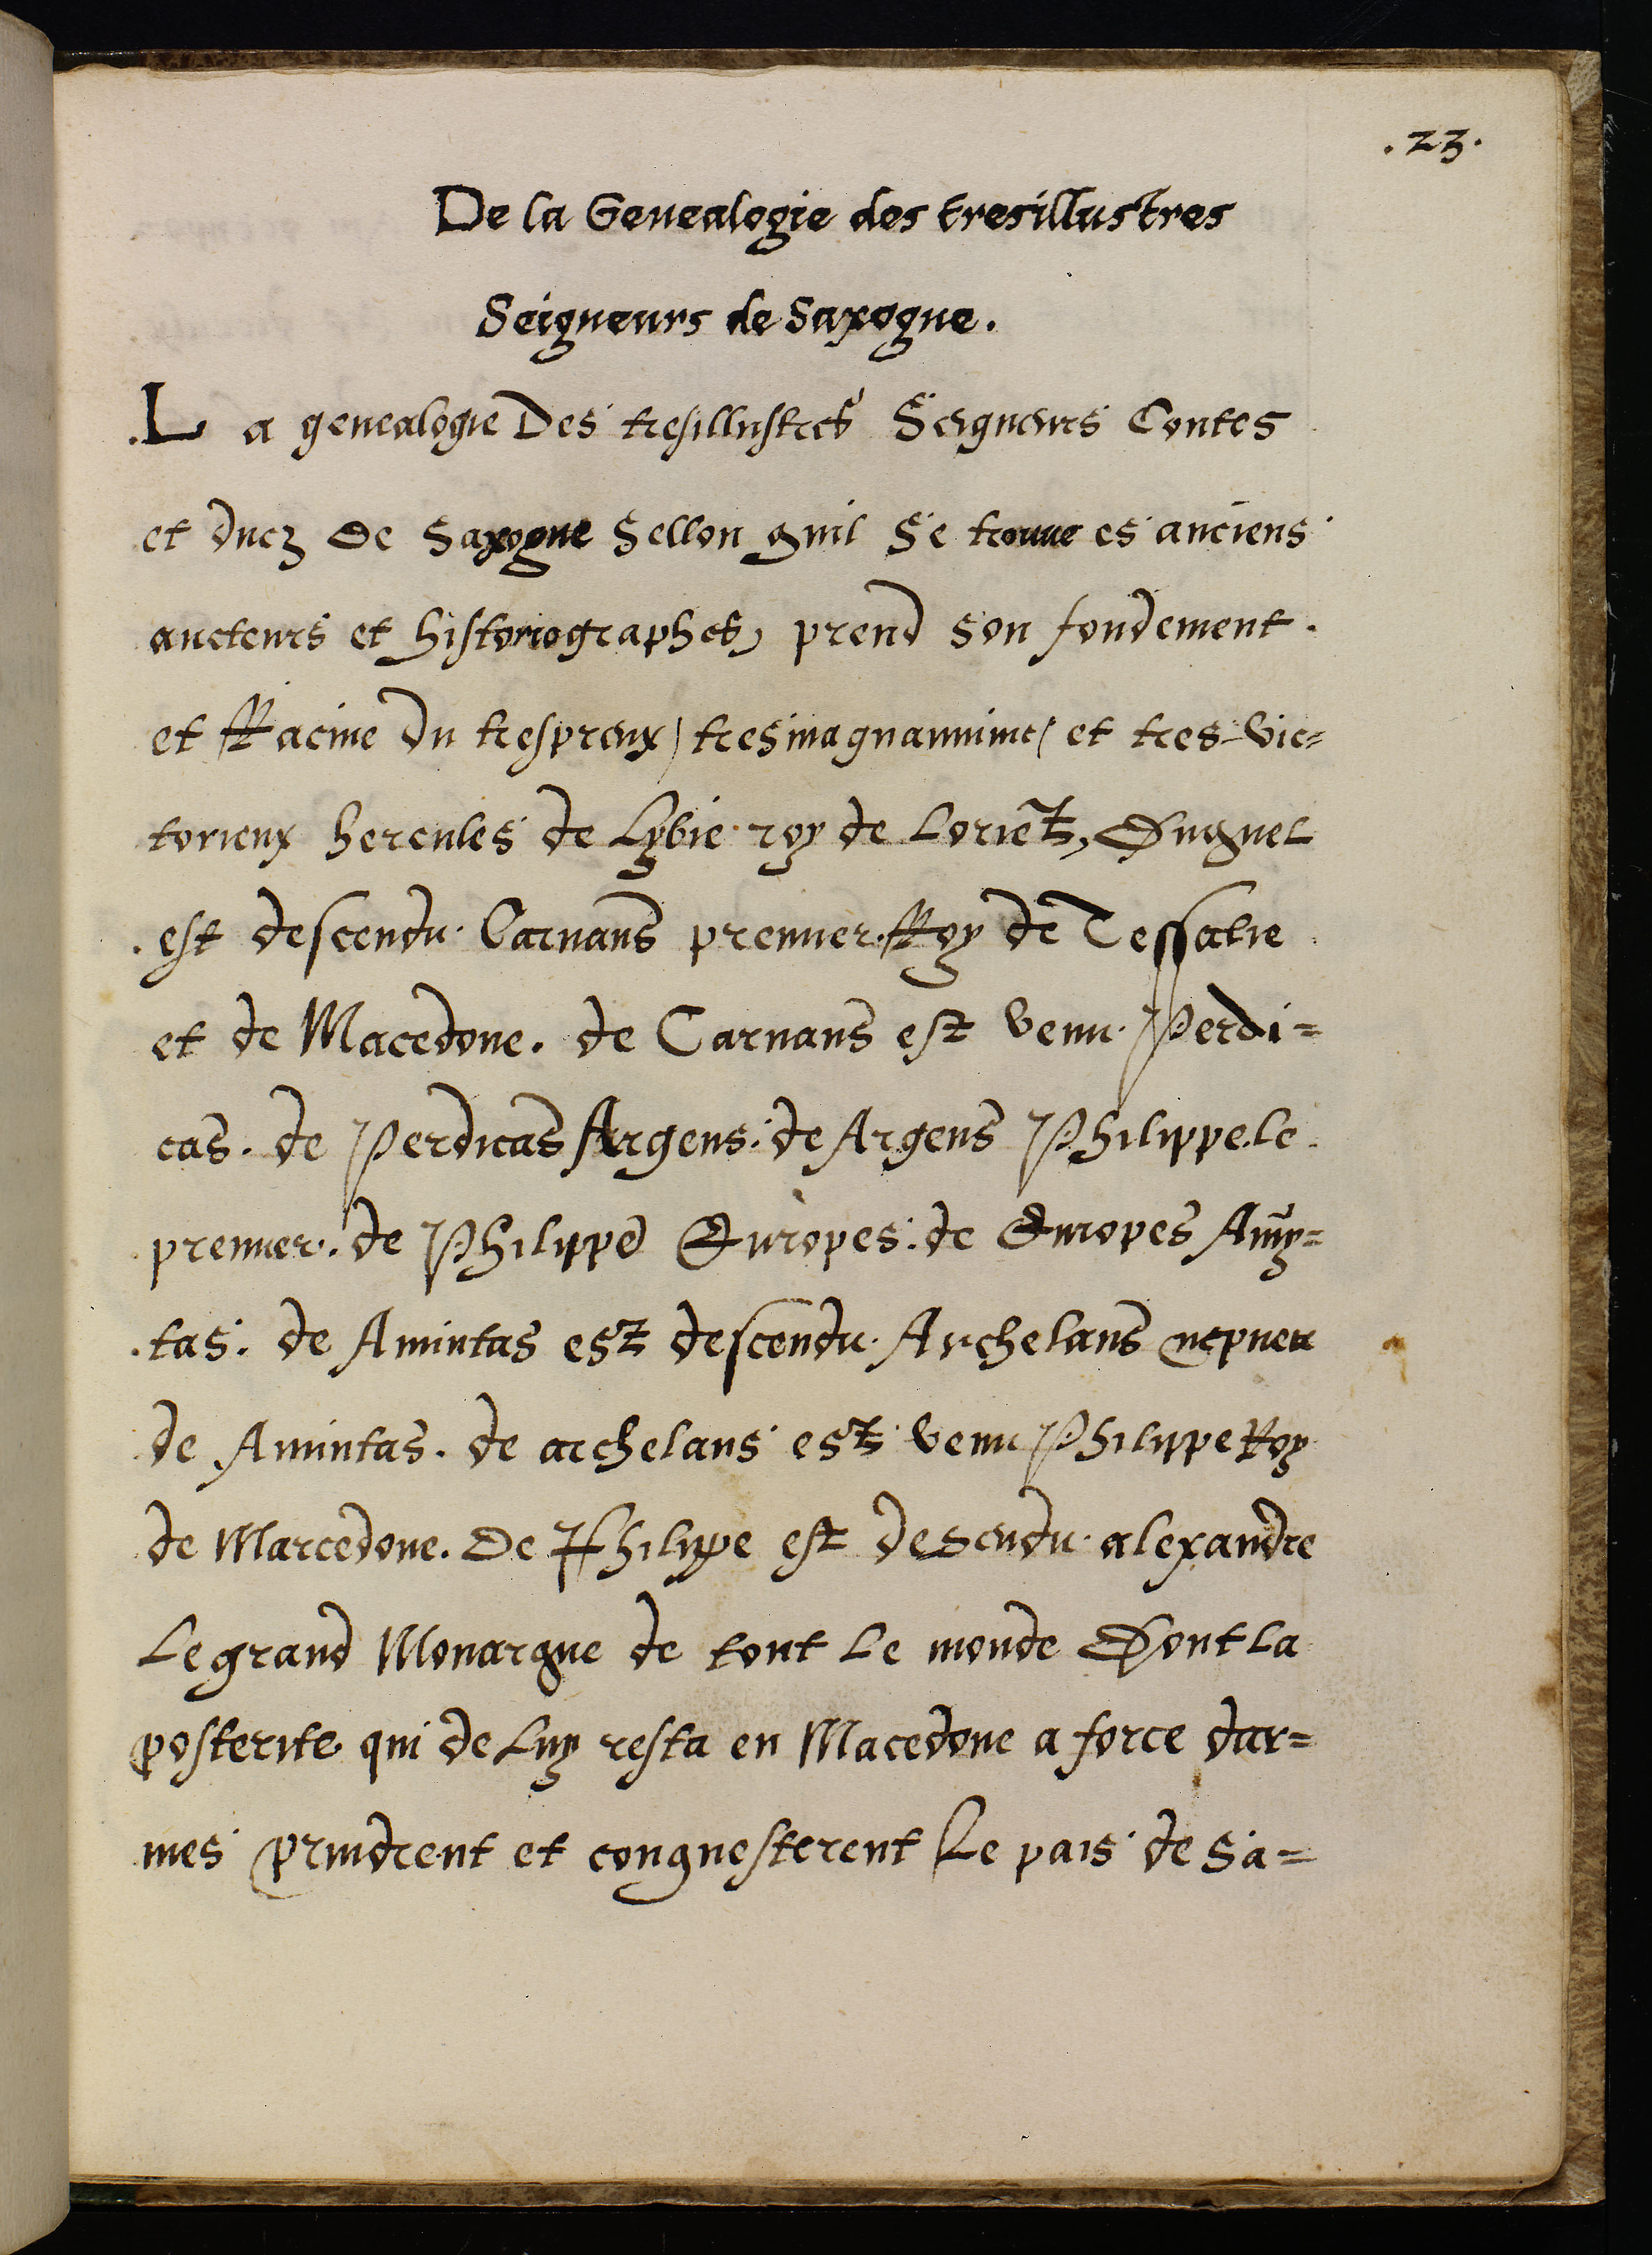 .23.
De la Genealogie des tresillustres
Seigneurs de Saxogne.
La genealogie Des tresillustres Seigneurs Contes
et ducz de Saxogne Sellon quil Se trouue es anciens
aucteurs et historiographes, prend son fondement.
et Racine du trespreux / tresmagnannime / et tres-Vic=
torieux hercules de Lybie roy de Loriẽt, Duquel
est descendu Carnans premier Roy de Tessalie
et de Macedone. de Carnans est venu Perdi=
cas. de Perdicas Argens. de Argens Philippe le
premier. de Philippe Europes. de Europes Amỹ=
tas. de Amintas est descendu Archelaus nepueu
de Amintas. de archelaus est venu Philippe Roy
de Marcedone. De Philippe est desendu alexandre
Le grand Monarque de tout Le monde Dont La
posterite qui de Luy resta en Macedone a force dar=
mes prindrent et conquesterent Le pais de Sa=